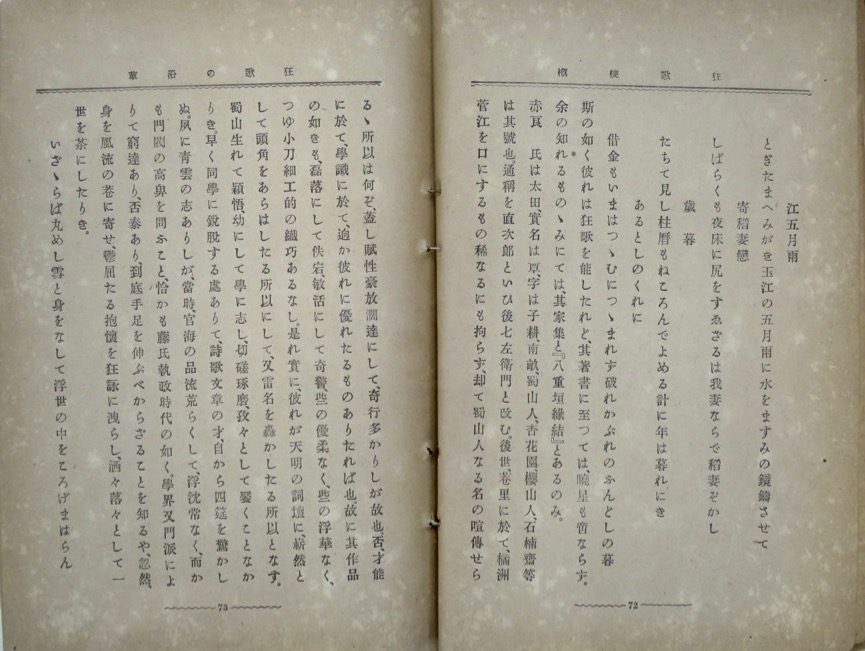 狂歌梗概
江五月雨
とぎたまへみがき玉江の五月雨に水をますみの鏡鑄させて
寄稻妻戀
しばらくも夜床に尻をすゑざるは我妻ならで稻妻ぞかし
歲暮
たちて見し柱曆もねころんでよめる計に年は暮れにき
あるとしのくれに
借金もいまはつゝむにつゝまれず破れかぶれのふんどしの暮
斯の如く彼れは狂歌を能したれど、其著書に至つては、曉星も啻ならず。
余の知れるものゝみにては、其家集と『八重垣緣結』とあるのみ。
赤良 氏は太田、實名は覃、字は子耕、南畝、蜀山人、杏花園、櫻山人、石楠齋等
は其號也通稱を直次郎といひ後七左衞門と改む。後世、巷里に於て、橘洲
菅江を口にするもの稀なるにも拘らず、却て蜀山人なる名の喧傳せら
72
狂歌の沿革
るゝ所以は何ぞ、蓋し賦性豪放濶達にして、奇行多かりしが故也、否、才能
に於て、學識に於て、逈か彼れに優れたるものありたれば也、故に其作品
の如きも、磊落にして佚宕、敏活にして奇警、些の優柔なく、些の浮華なく、
つゆ小刀細工的の纎巧あるなし。是れ實に、彼れが天明の詞壇に、嶄然と
して頭角をあらはしたる所以にして、又雷名を轟かしたる所以となす。
蜀山生れて穎悟、幼にして學に志し、切磋琢磨、孜々として饜くことなか
りき。早く同學に銳脫する處ありて、詩歌文章の才、自から四筵を驚かし
ぬ。夙に靑雲の志ありしが、當時、官海の品流荒らくして、浮沈常なく、而か
も門閥の高卑を問ふこと、恰かも藤氏執政時代の如く。學界又門派によ
りて窮達あり、否泰あり、到底手足を伸ぶべからざることを知るや、忽然、
身を風流の巷に寄せ、鬱屈たる抱懷を狂詠に洩らし、洒々落々として一
世を茶にしたりき。
いざゝらば丸めし雪と身をなして浮世の中をころげまはらん
73